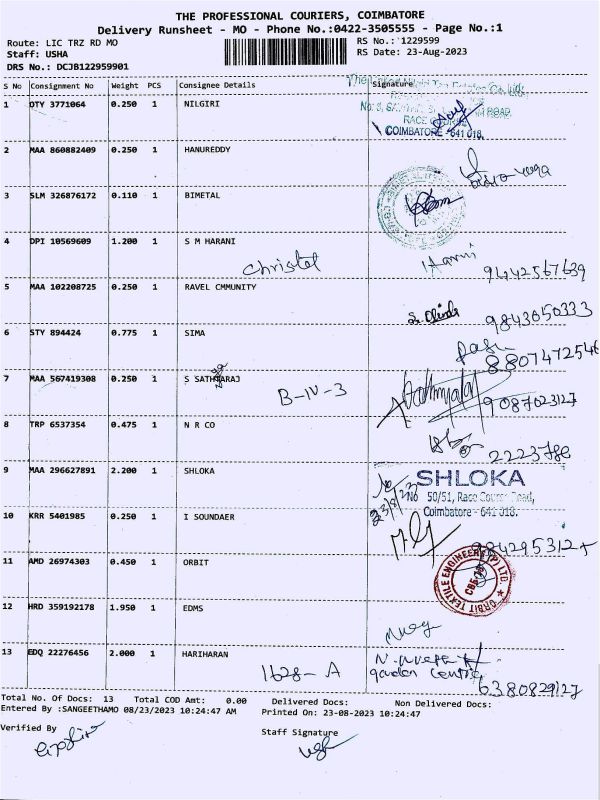 THE PROFESSIONAL COURIERS, COIMBATORE
Delivery Runsheet - MO - Phone No.:0422-3505555 - Page No.:1
Route: LIC TRZ RD MO
RS No.: 1229599
Staff: USHA
RS Date: 23-Aug-2023
DRS No.: DCJB122959901
S No Consignment No Weight PCS Consignee Details Signature
1 DTY 3771064 0.250 1 NILGIRI
RACE
COIMBATORE - 641 018.
2 MAA 860882409 0.250 1 HANUREDDY
3 SLM 326876172 0.110 1 BIMETAL
4 DPI 10569609 1.200 1 S M HARANI
Christel
9442567639
5 MAA 102208725 0.250 1 RAVEL CMMUNITY
9843650333
6 STY 894424 0.775 1 SIMA
8807472546
7 MAA 567419308 0.250 1 S SATHYARAJ
B-IV-3
9087023127
8 TRP 6537354 0.475 1 N R CO
2223786
9 MAA 296627891 2.200 1 SHLOKA
SHLOKA
No 50/51, Race Course Road,
Coimbatore - 641 018.
23/8/23
10 KRR 5401985 0.250 1 I SOUNDAER
11 AMD 26974303 0.450 1 ORBIT
ORBIT TEXTILE ENGINEERS (P) LTD.
12 HRD 359192178 1.950 1 EDMS
13 EDQ 22276456 2.000 1 HARIHARAN
1628-A
garden centre
6380829127
Total No. Of Docs: 13 Total COD Amt: 0.00 Delivered Docs: Non Delivered Docs:
Entered By :SANGEETHAMO 08/23/2023 10:24:47 AM Printed On: 23-08-2023 10:24:47
Verified By
Staff Signature